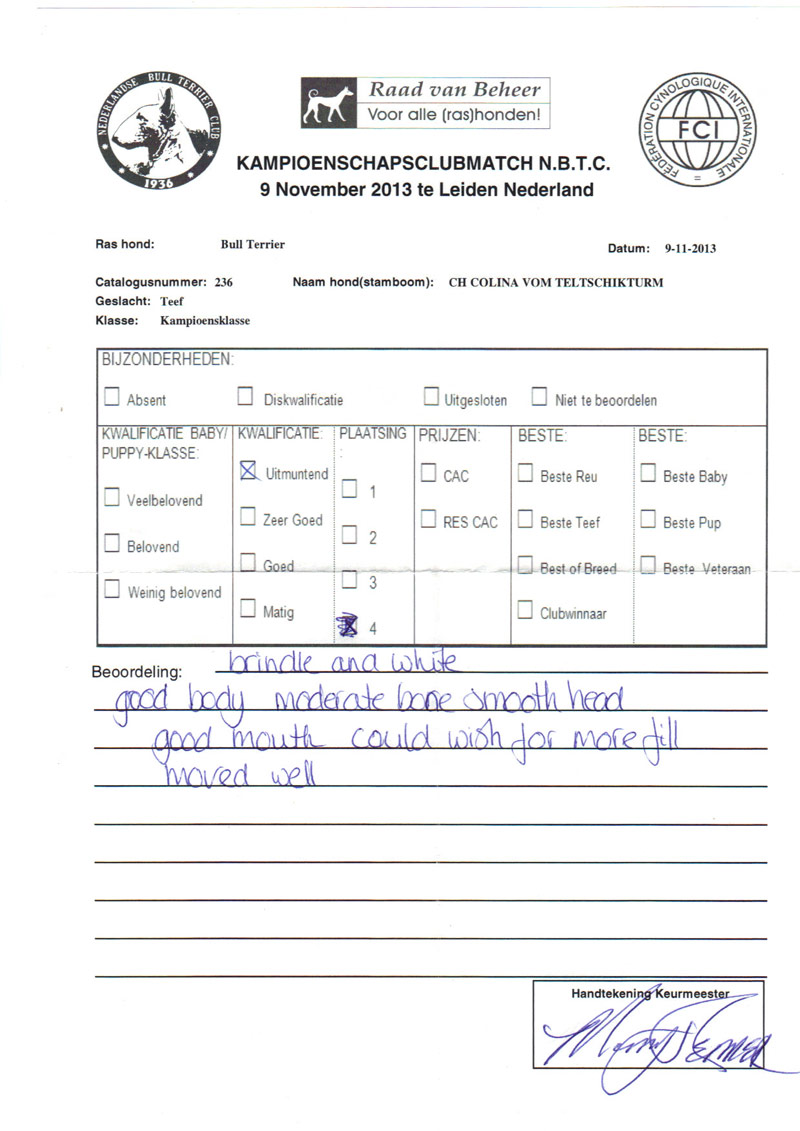 NEDERLANDSE BULL TERRIER CLUB
1936
Raad van Beheer
Voor alle (ras)honden!
FÉDÉRATION CYNOLOGIQUE INTERNATIONALE
FCI
KAMPIOENSCHAPSCLUBMATCH N.B.T.C.
9 November 2013 te Leiden Nederland
Ras hond: Bull Terrier
Datum: 9-11-2013
Catalogusnummer: 236 Naam hond(stamboom): CH COLINA VOM TELTSCHIKTURM
Geslacht: Teef
Klasse: Kampioensklasse
BIJZONDERHEDEN:
Absent Diskwalificatie Uitgesloten Niet te beoordelen
KWALIFICATIE BABY/
PUPPY-KLASSE:
Veelbelovend
Belovend
Weinig belovend
KWALIFICATIE:
Uitmuntend
Zeer Goed
Goed
Matig
PLAATSING
:
1
2
3
4
PRIJZEN:
CAC
RES CAC
BESTE:
Beste Reu
Beste Teef
Best of Breed
Clubwinnaar
BESTE:
Beste Baby
Beste Pup
Beste Veteraan
Beoordeling: brindle and white
good body moderate bone smooth head
good mouth could wish for more fill
moved well
Handtekening Keurmeester